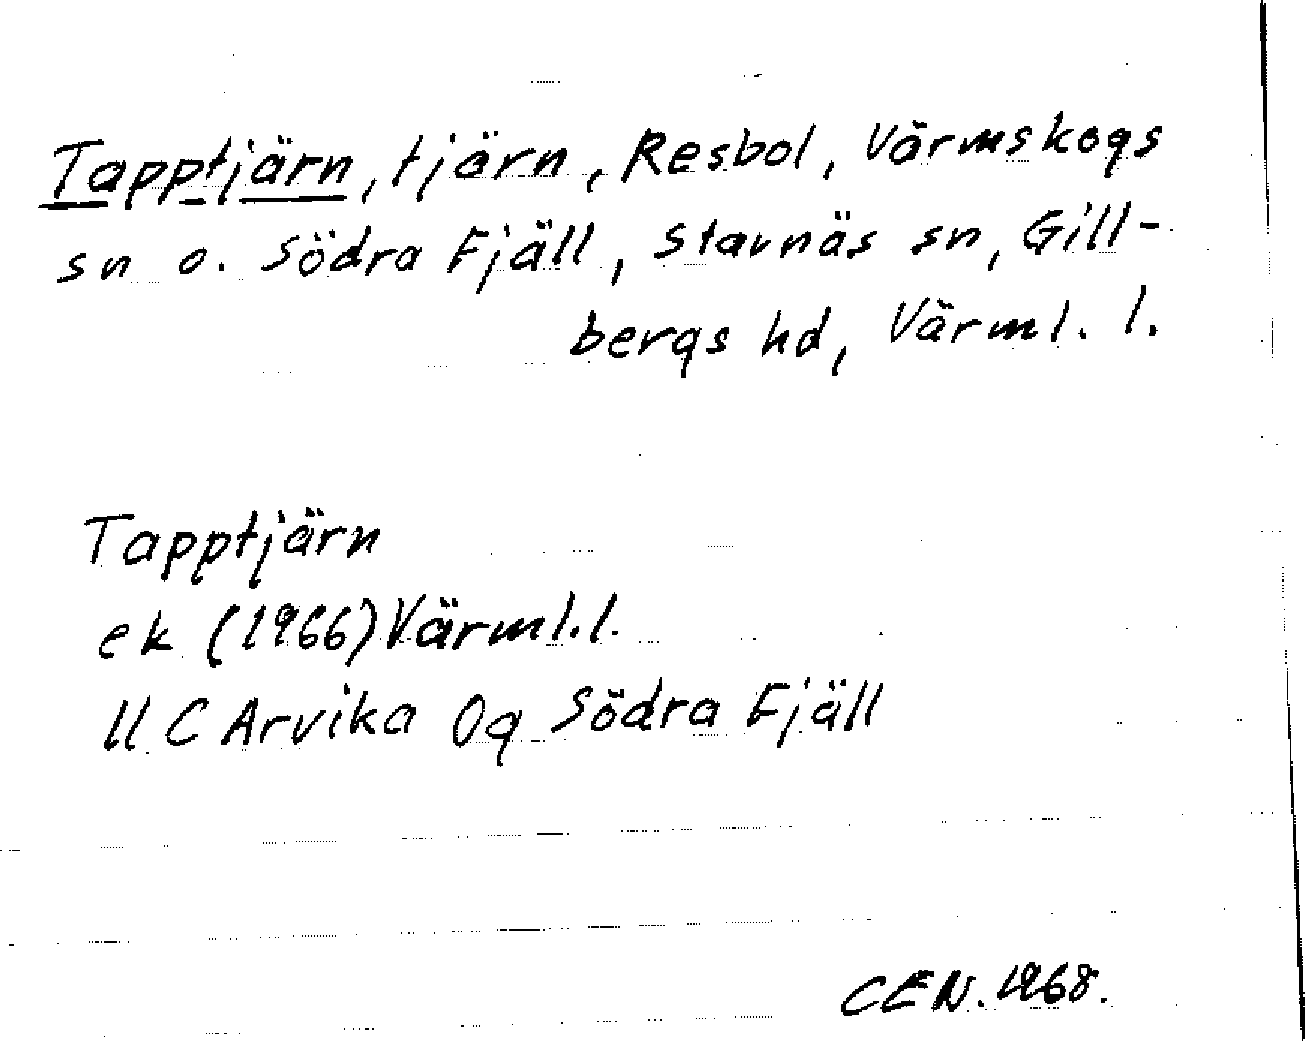 Tapptjärn, tjärn, Resbol, Värmskogs
sn o. Södra Fjäll, Stavnäs sn, Gill-
bergs hd, Värml. l.
Tapptjärn
ek (1966) Värml. l.
11 C Arvika 0g Södra Fjäll
CEN. 1968.